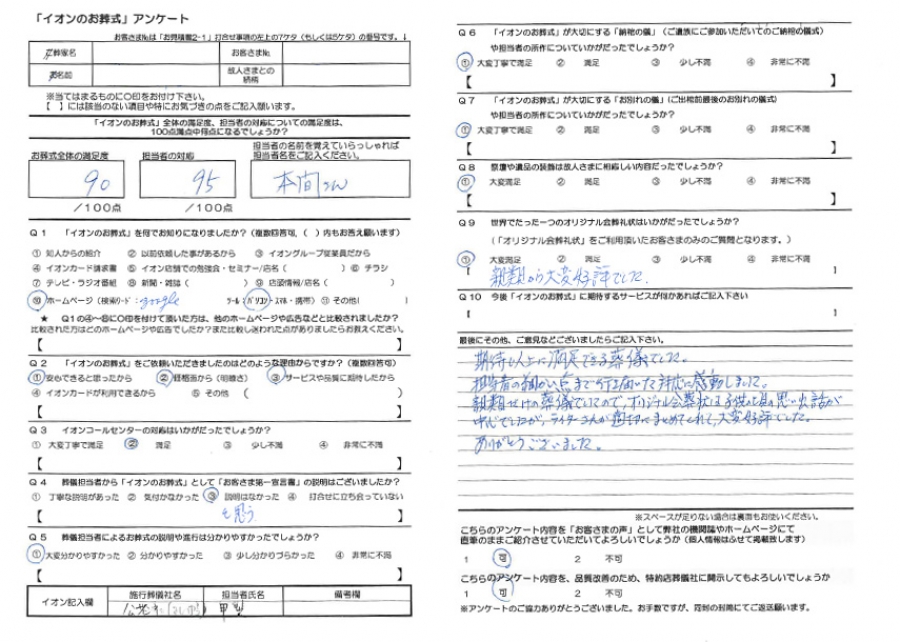 「イオンのお葬式」アンケート
お客さま№は「お見積書2-1」打合せ事項の左上の7ケタ（もしくは5ケタ）の番号です。↓
ご葬家名
お客さま№
お名前
故人さまとの
続柄
※当てはまるものに○印をお付け下さい。
【　】には該当のない項目や特にお気づきの点をご記入願います。
「イオンのお葬式」全体の満足度、担当者の対応についての満足度は、
100点満点中何点になるでしょうか？
お葬式全体の満足度
担当者の対応
担当者の名前を覚えていらっしゃれば
担当者名をご記入ください。
90
95
本間さん
／100点
／100点
Q 1 「イオンのお葬式」を何でお知りになりましたか？（複数回答可、（　）内もお答え願います）
① 知人からの紹介 ② 以前依頼した事があるから ③ イオングループ従業員だから
④ イオンカード請求書 ⑤ イオン店舗での勉強会・セミナー/店名（　） ⑥ チラシ
⑦ テレビ・ラジオ番組 ⑧ 新聞・雑誌（　） ⑨ 店頭情報/店名（　）
⑩ ホームページ（検索ワード：google ツール：パソコン・スマホ・携帯） ⑪ その他（　）
★ Q1の④～⑧に○印を付けて頂いた方は、他のホームページや広告などと比較されましたか？
比較された方はどのホームページや広告でしたか？また比較し迷われた点がありましたらお教えください。
【　】
Q 2 「イオンのお葬式」をご依頼いただきましたのはどのような理由からですか？（複数回答可）
① 安心できると思ったから ② 価格面から（明確さ） ③ サービスや品質に期待したから
④ イオンカードが利用できるから ⑤ その他（　）
【　】
Q 3 イオンコールセンターの対応はいかがだったでしょうか？
① 大変丁寧で満足 ② 満足 ③ 少し不満 ④ 非常に不満
【　】
Q 4 葬儀担当者から「イオンのお葬式」として「お客さま第一宣言書」の説明はございましたか？
① 丁寧な説明があった ② 気付かなかった ③ 説明はなかった ④ 打合せに立ち会っていない
【 と思う 】
Q 5 葬儀担当者によるお葬式の説明や進行は分かりやすかったでしょうか？
① 大変分かりやすかった ② 分かりやすかった ③ 少し分かりづらかった ④ 非常に不満
【　】
イオン記入欄
施行葬儀社名
担当者氏名
備考欄
Q 6 「イオンのお葬式」が大切にする「納棺の儀」（ご遺族にご参加いただいてのご納棺の儀式）
や担当者の所作についていかがだったでしょうか？
① 大変丁寧で満足 ② 満足 ③ 少し不満 ④ 非常に不満
【　】
Q 7 「イオンのお葬式」が大切にする「お別れの儀」（ご出棺前最後のお別れの儀式）
や担当者の所作についていかがだったでしょうか？
① 大変丁寧で満足 ② 満足 ③ 少し不満 ④ 非常に不満
【　】
Q 8 祭壇や遺品の装飾は故人さまに相応しい内容だったでしょうか？
① 大変満足 ② 満足 ③ 少し不満 ④ 非常に不満
【　】
Q 9 世界でたった一つのオリジナル会葬礼状はいかがだったでしょうか？
（「オリジナル会葬礼状」をご利用頂いたお客さまのみのご質問となります。）
① 大変満足 ② 満足 ③ 少し不満 ④ 非常に不満
【 親類から大変好評でした。 】
Q 10 今後「イオンのお葬式」に期待するサービスが何かあればご記入下さい
【　】
最後にその他、ご意見などございましたらご記入下さい。
期待以上に満足できる葬儀でした。
担当者の細かい点まで行き届いた対応に感動しました。
親類だけの葬儀でしたので、オリジナル会葬状は子供の頃の思い出話が
中心でしたが、ライターさんが適切にまとめてくれて、大変好評でした。
ありがとうございました。
※スペースが足りない場合は裏面もお使いください。
こちらのアンケート内容を「お客さまの声」として弊社の機関誌やホームページにて
直筆のままご紹介させていただいてよろしいでしょうか（個人情報はふせて掲載致します）
1 可 2 不可
こちらのアンケート内容を、品質改善のため、特約店葬儀社に開示してもよろしいでしょうか
1 可 2 不可
※アンケートのご協力ありがとうございました。お手数ですが、同封の封筒にてご返送願います。